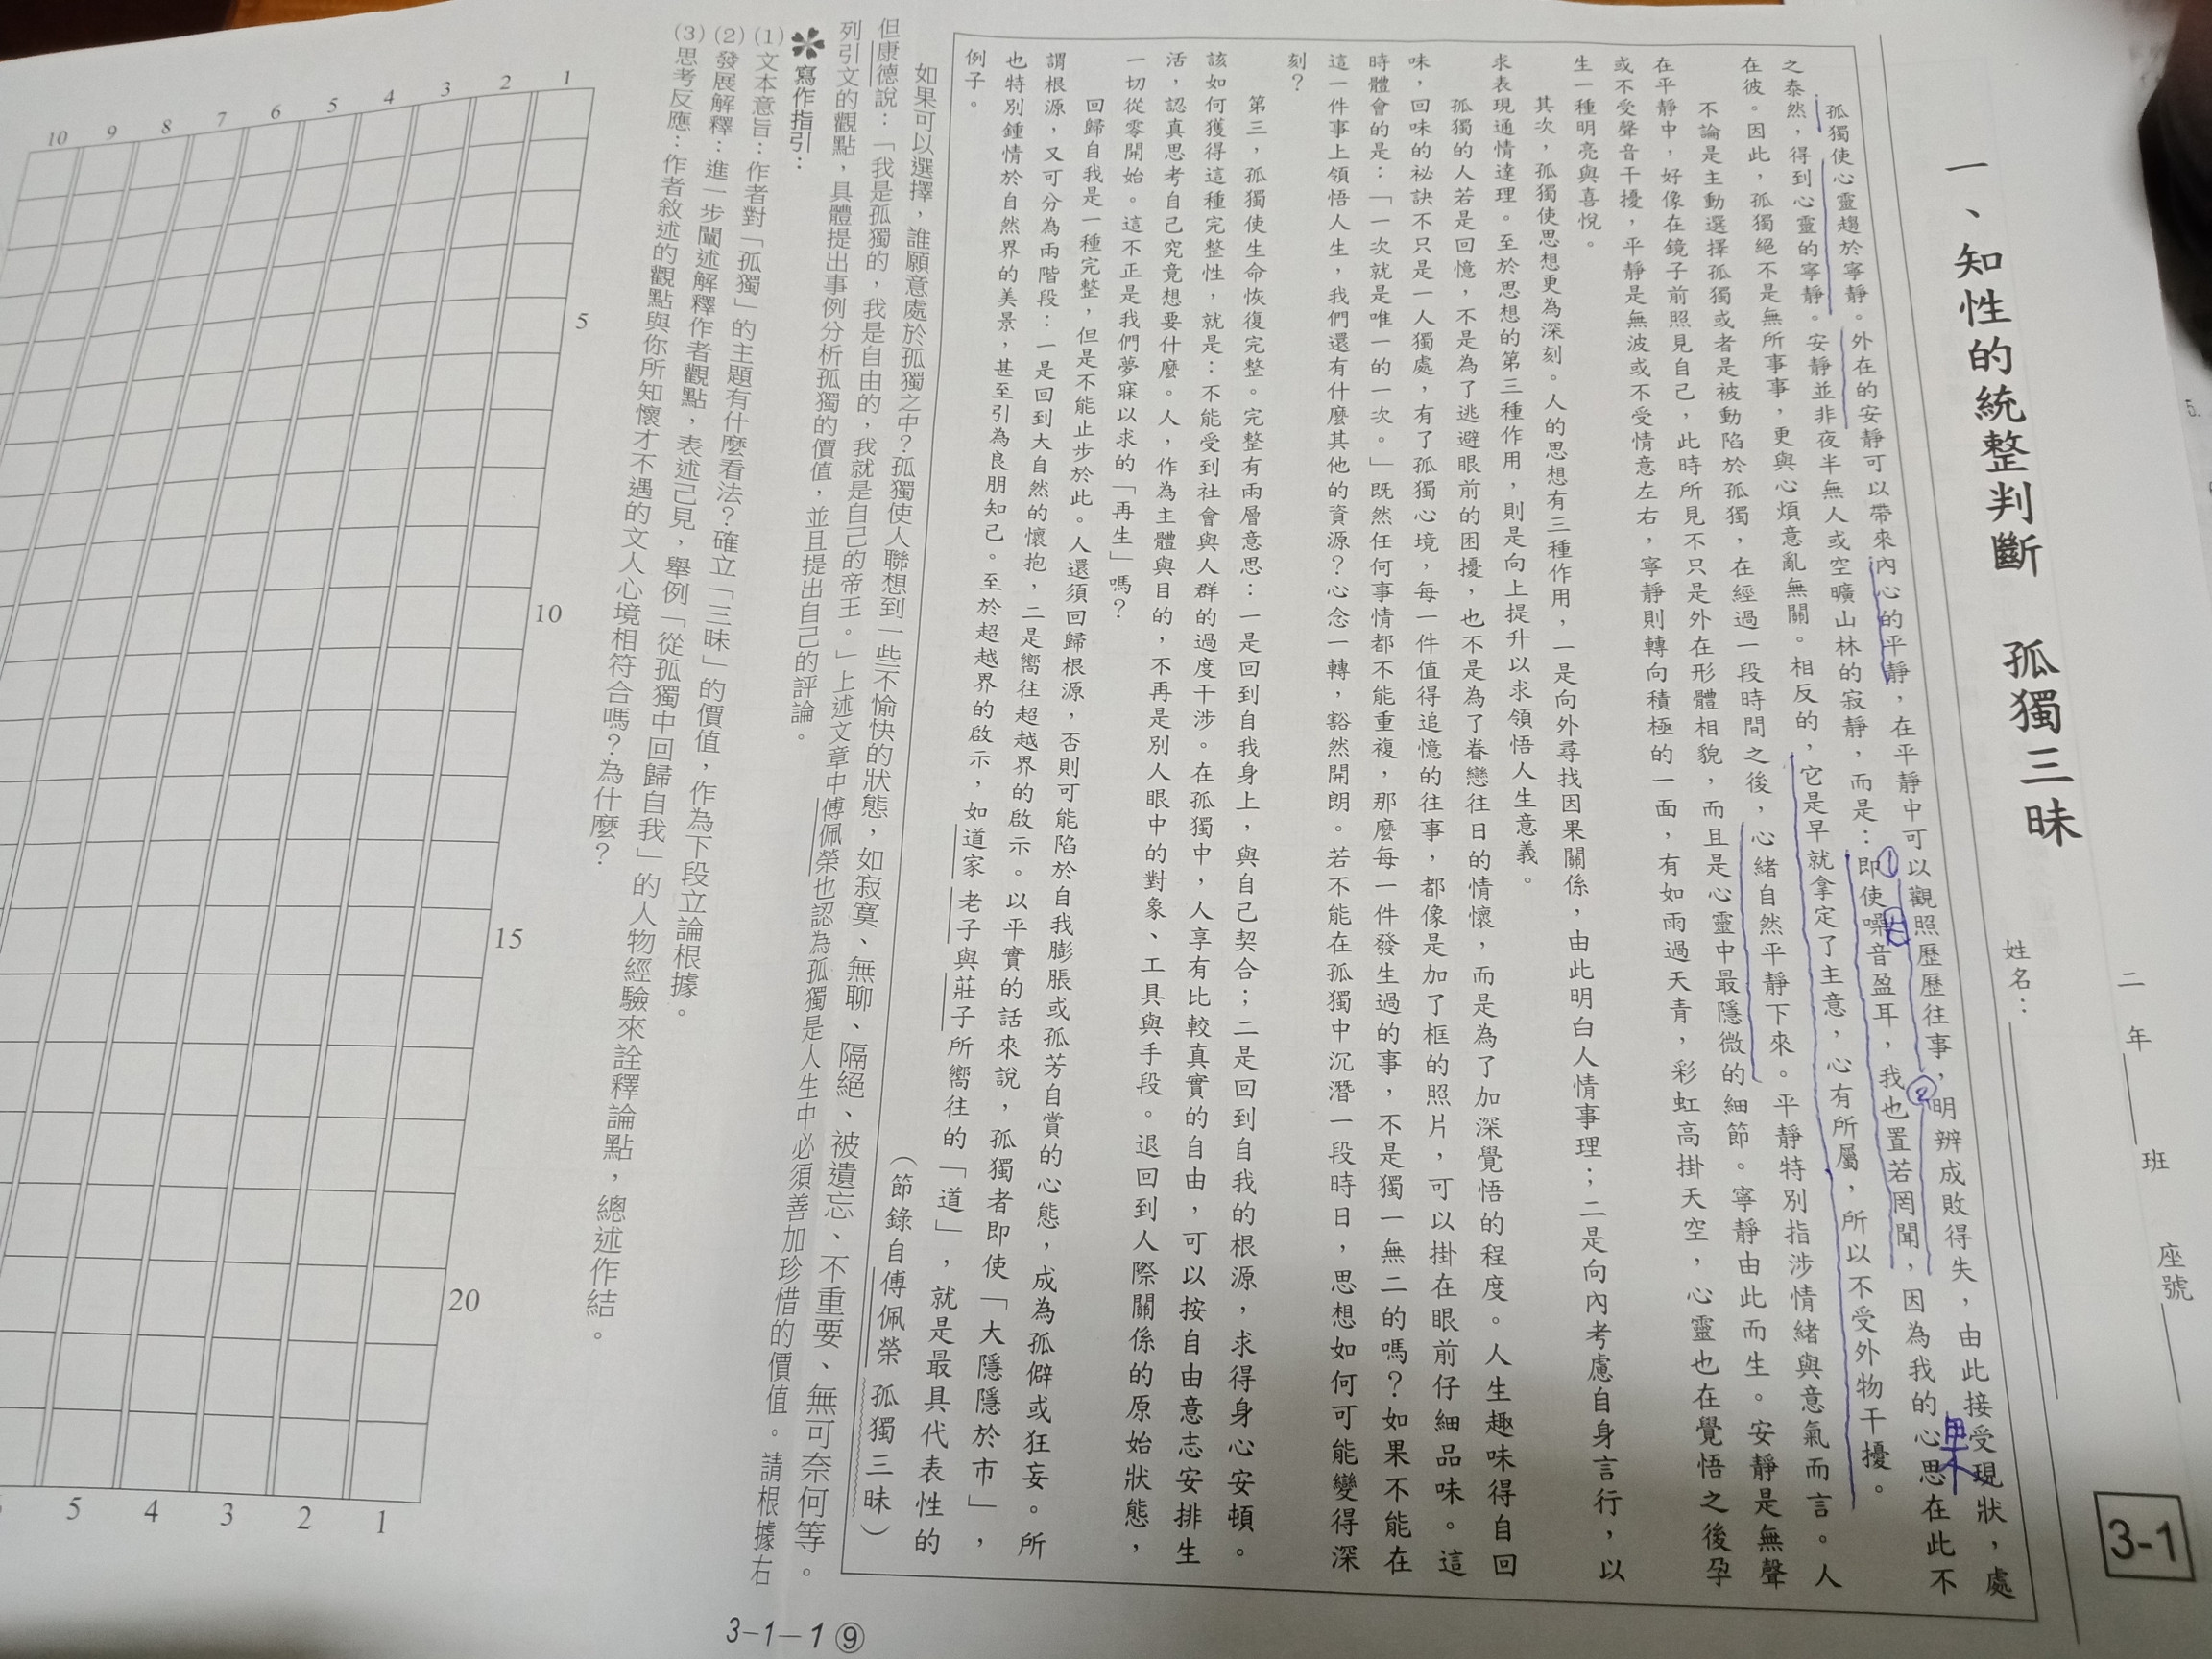 二年 班 座號
3-1
一、知性的統整判斷 孤獨三昧
姓名：
孤獨使心靈趨於寧靜。外在的安靜可以帶來內心的平靜，在平靜中可以觀照歷歷往事，明辨成敗得失，由此接受現狀，處
之泰然，得到心靈的寧靜。安靜並非夜半無人或空曠山林的寂靜，而是：即使噪音盈耳，我也置若罔聞，因為我的心思在此不
在彼。因此，孤獨絕不是無所事事，更與心煩意亂無關。相反的，它是早就拿定了主意，心有所屬，所以不受外物干擾。
① 因 ② 果
不論是主動選擇孤獨或者是被動陷於孤獨，在經過一段時間之後，心緒自然平靜下來。平靜特別指涉情緒與意氣而言。人
在平靜中，好像在鏡子前照見自己，此時所見不只是外在形體相貌，而且是心靈中最隱微的細節。寧靜由此而生。安靜是無聲
或不受聲音干擾，平靜是無波或不受情意左右，寧靜則轉向積極的一面，有如雨過天青，彩虹高掛天空，心靈也在覺悟之後孕
生一種明亮與喜悅。
其次，孤獨使思想更為深刻。人的思想有三種作用，一是向外尋找因果關係，由此明白人情事理；二是向內考慮自身言行，以
求表現通情達理。至於思想的第三種作用，則是向上提升以求領悟人生意義。
孤獨的人若是回憶，不是為了逃避眼前的困擾，也不是為了眷戀往日的情懷，而是為了加深覺悟的程度。人生趣味得自回
味，回味的祕訣不只是一人獨處，有了孤獨心境，每一件值得追憶的往事，都像是加了框的照片，可以掛在眼前仔細品味。這
時體會的是：「一次就是唯一的一次。」既然任何事情都不能重複，那麼每一件發生過的事，不是獨一無二的嗎？如果不能在
這一件事上領悟人生，我們還有什麼其他的資源？心念一轉，豁然開朗。若不能在孤獨中沉潛一段時日，思想如何可能變得深
刻？
第三，孤獨使生命恢復完整。完整有兩層意思：一是回到自我身上，與自己契合；二是回到自我的根源，求得身心安頓。
該如何獲得這種完整性，就是：不能受到社會與人群的過度干涉。在孤獨中，人享有比較真實的自由，可以按自由意志安排生
活，認真思考自己究竟想要什麼。人，作為主體與目的，不再是別人眼中的對象、工具與手段。退回到人際關係的原始狀態，
一切從零開始。這不正是我們夢寐以求的「再生」嗎？
回歸自我是一種完整，但是不能止步於此。人還須回歸根源，否則可能陷於自我膨脹或孤芳自賞的心態，成為孤僻或狂妄。所
謂根源，又可分為兩階段：一是回到大自然的懷抱，二是嚮往超越界的啟示。以平實的話來說，孤獨者即使「大隱隱於市」，
也特別鍾情於自然界的美景，甚至引為良朋知己。至於超越界的啟示，如道家 老子與莊子所嚮往的「道」，就是最具代表性的
例子。
（節錄自傅佩榮 孤獨三昧）
如果可以選擇，誰願意處於孤獨之中？孤獨使人聯想到一些不愉快的狀態，如寂寞、無聊、隔絕、被遺忘、不重要、無可奈何等。
但康德說：「我是孤獨的，我是自由的，我就是自己的帝王。」上述文章中傅佩榮也認為孤獨是人生中必須善加珍惜的價值。請根據右
列引文的觀點，具體提出事例分析孤獨的價值，並且提出自己的評論。
寫作指引：
(1) 文本意旨：作者對「孤獨」的主題有什麼看法？確立「三昧」的價值，作為下段立論根據。
(2) 發展解釋：進一步闡述解釋作者觀點，表述己見，舉例「從孤獨中回歸自我」的人物經驗來詮釋論點，總述作結。
(3) 思考反應：作者敘述的觀點與你所知懷才不遇的文人心境相符合嗎？為什麼？
1 2 3 4 5 6 7 8 9 10
5
10
15
20
1 2 3 4 5
3-1-1⑨